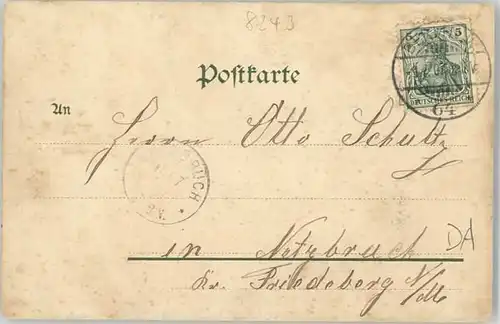 8243
5 5
DEUTSCHES REICH
64
Postkarte
An
Herrn Otto Schultz
BRUCH
in Netzbruch
Kr. Friedeberg N/M
DA